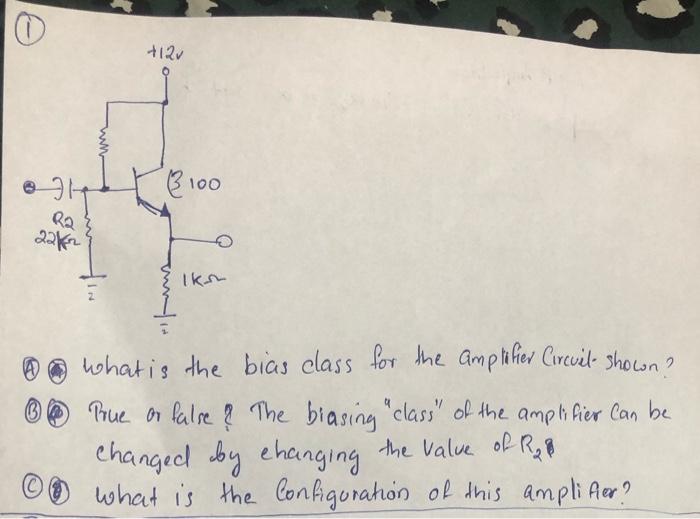 1
+12v
β 100
R2
22kΩ
1kΩ
A what is the bias class for the amplifier Circuit shown?
B True or false? The biasing "class" of the amplifier Can be
changed by changing the value of R2
C what is the Configuration of this amplifier?